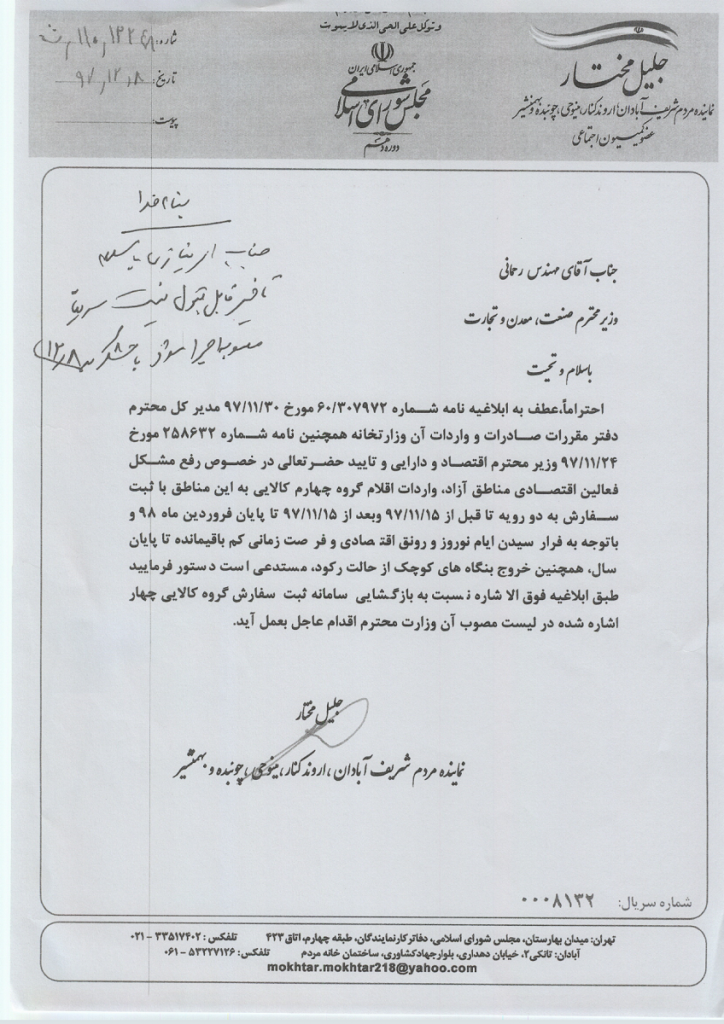 وتوکل علی الحی الذی لایموت
جمهوری اسلامی ایران
مجلس شورای اسلامی
دوره دهم
جلیل مختار
نماینده مردم شریف آبادان، اروندکنار، مینوحی، چوئبده و بهمنشیر
عضو کمیسیون اجتماعی
شماره:
تاریخ: ۹۷/۱۲/۸
پیوست:
بنام خدا
جناب
تاخیر قابل قبول نیست سریعاً
جناب آقای مهندس رحمانی
وزیر محترم صنعت، معدن و تجارت
باسلام و تحیت
احتراماً،عطف به ابلاغیه نامه شماره ۶۰/۳۰۷۹۷۲ مورخ ۹۷/۱۱/۳۰ مدیر کل محترم
دفتر مقررات صادرات و واردات آن وزارتخانه همچنین نامه شماره ۲۵۸۶۳۲ مورخ
۹۷/۱۱/۲۴ وزیر محترم اقتصاد و دارایی و تایید حضرتعالی در خصوص رفع مشکل
فعالین اقتصادی مناطق آزاد، واردات اقلام گروه چهارم کالایی به این مناطق با ثبت
سفارش به دو رویه تا قبل از ۹۷/۱۱/۱۵ وبعد از ۹۷/۱۱/۱۵ تا پایان فروردین ماه ۹۸ و
باتوجه به فرار سیدن ایام نوروز و رونق اقتصادی و فر صت زمانی کم باقیمانده تا پایان
سال، همچنین خروج بنگاه های کوچک از حالت رکود، مستدعی است دستور فرمایید
طبق ابلاغیه فوق الا شاره نسبت به بازگشایی سامانه ثبت سفارش گروه کالایی چهار
اشاره شده در لیست مصوب آن وزارت محترم اقدام عاجل بعمل آید.
جلیل مختار
نماینده مردم شریف آبادان، اروندکنار، مینوحی، چوئبده و بهمنشیر
شماره سریال: ۰۰۰۸۱۳۲
تهران: میدان بهارستان، مجلس شورای اسلامی، دفاتر کار نمایندگان، طبقه چهارم، اتاق ۴۲۳ تلفکس: ۳۳۵۱۷۴۰۲ - ۰۲۱
آبادان: تانکی۲، خیابان دهداری، بلوار جهادکشاورزی، ساختمان خانه مردم تلفکس: ۵۳۲۲۷۱۲۶ - ۰۶۱
mokhtar.mokhtar218@yahoo.com